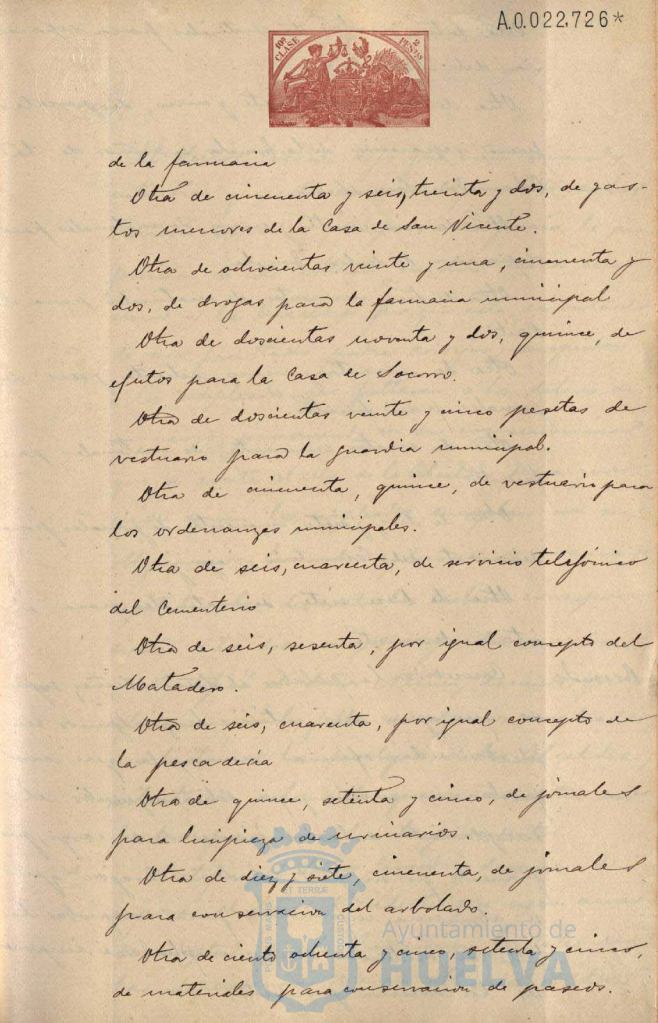 A.0.022.726*
10ª CLASE 2 PESETAS
de la farmacia
Otra de cincuenta y seis, treinta y dos, de gas-
tos menores de la Casa de San Vicente.
Otra de ochocientas veinte y una, cincuenta y
dos, de drogas para la farmacia municipal
Otra de doscientas noventa y dos, quince, de
efectos para la Casa de Socorro.
Otra de doscientas veinte y cinco pesetas de
vestuario para la guardia municipal.
Otra de cincuenta, quince, de vestuario para
los ordenanzas municipales.
Otra de seis, cuarenta, de servicio telefónico
del Cementerio
Otra de seis, sesenta, por igual concepto del
Matadero.
Otra de seis, cuarenta, por igual concepto de
la pescadería
Otra de quince, setenta y cinco, de jornales
para limpieza de urinarios.
Otra de diez y siete, cincuenta, de jornales
para conservacion del arbolado.
Otra de ciento ochenta y cinco, setenta y cinco,
de materiales para conservacion de paseos.
Ayuntamiento de
HUELVA